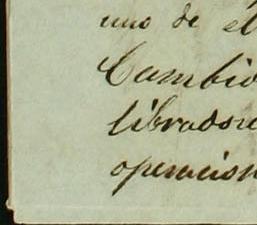 uno de él
Cambio
librador
operacion